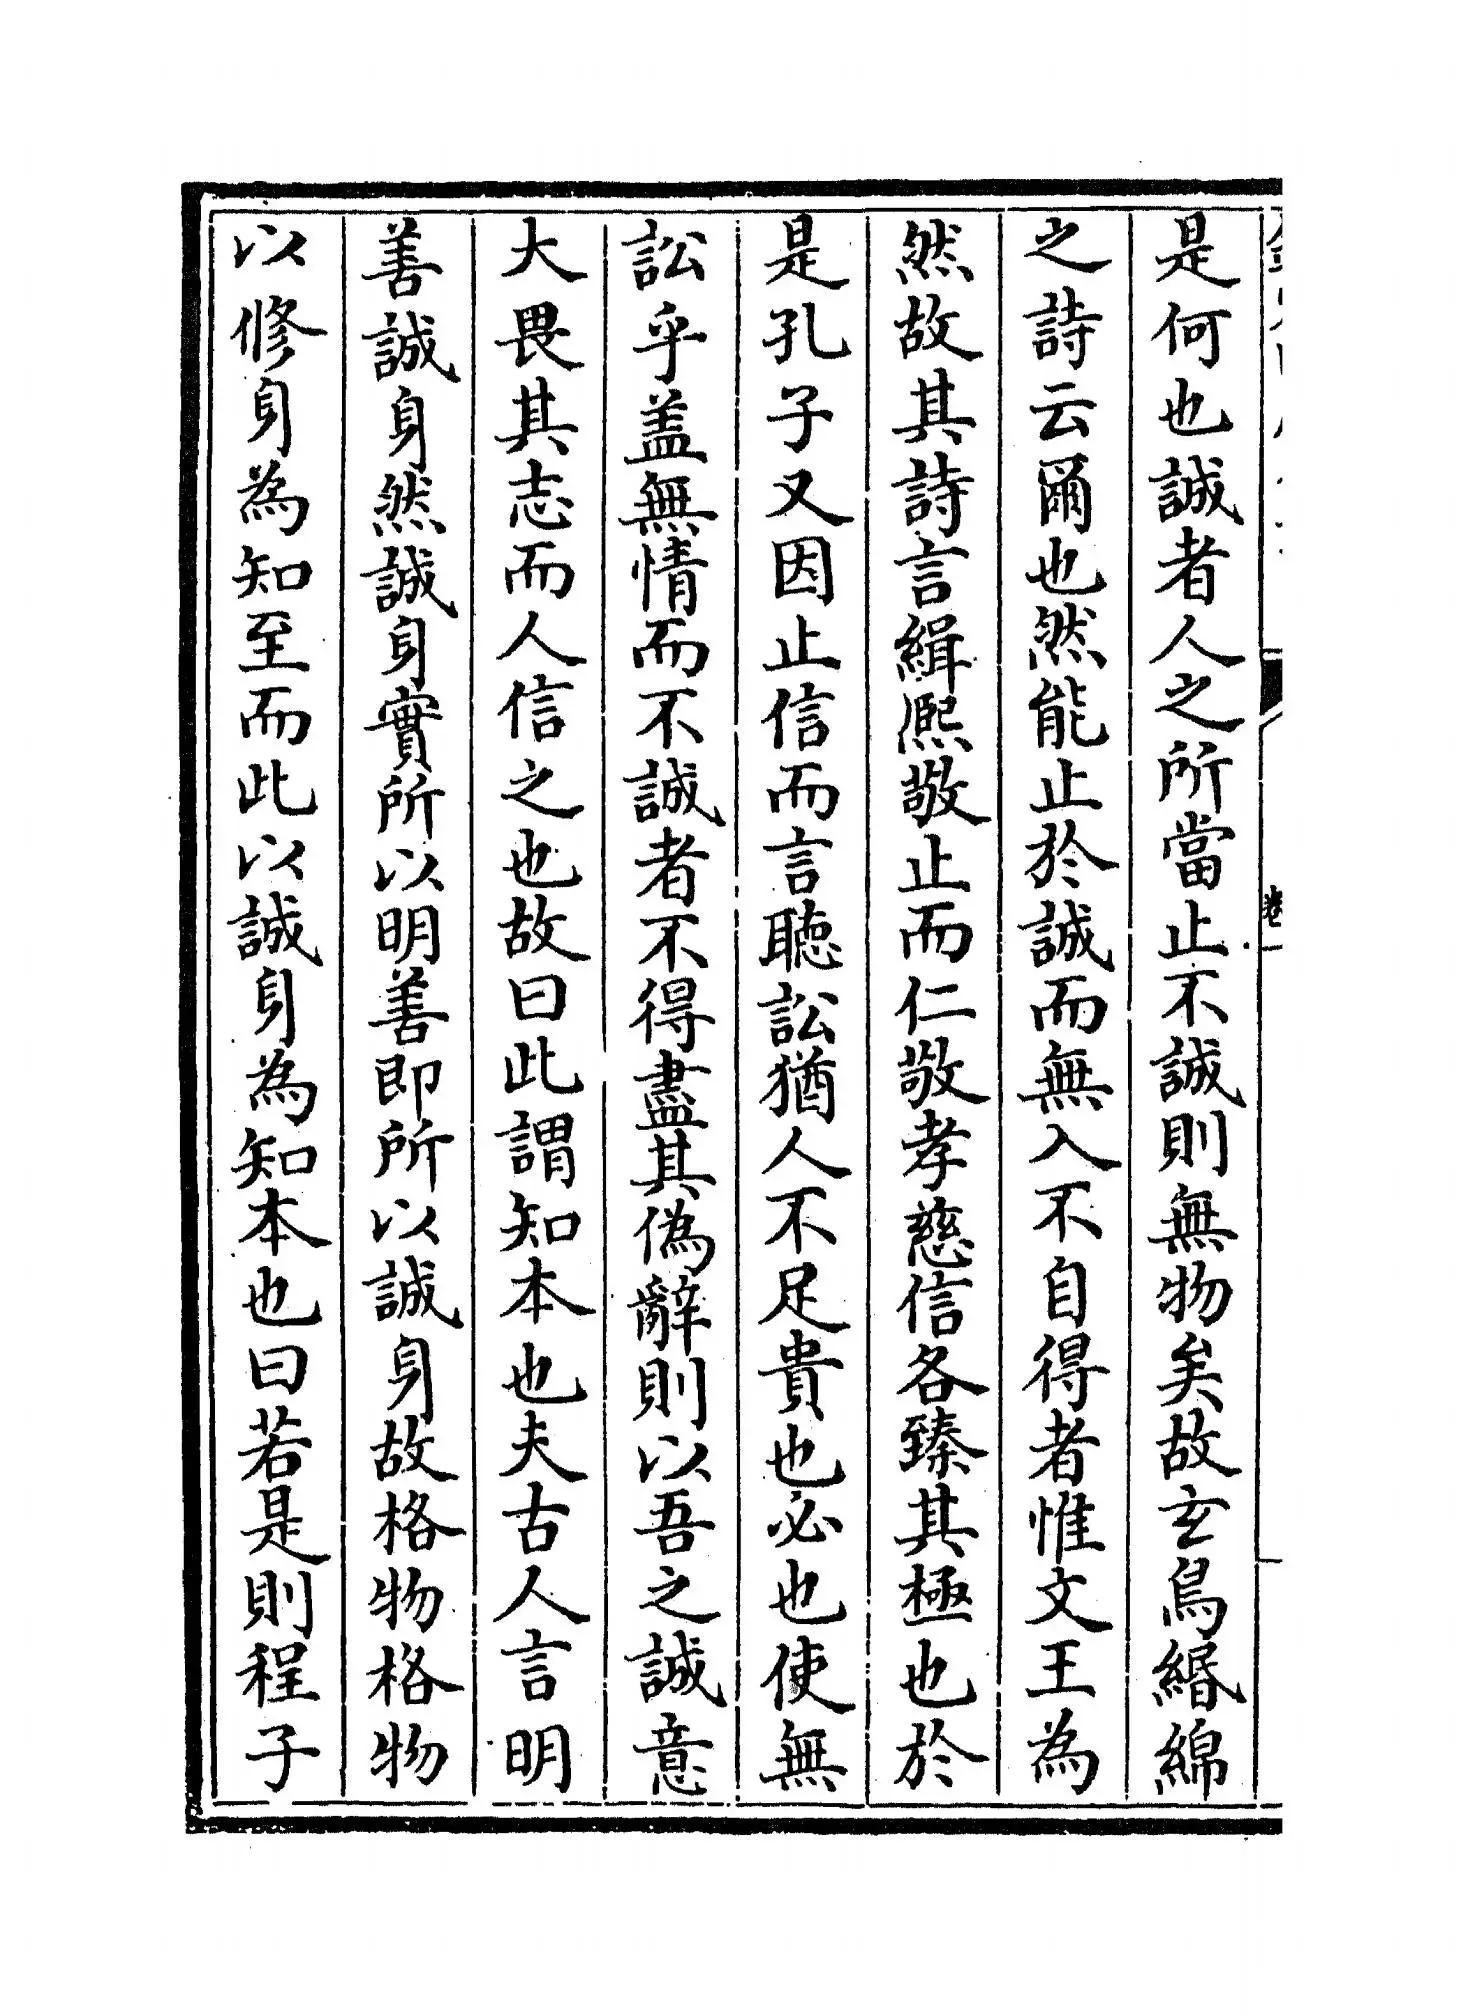 是何也誠者人之所當止不誠則無物矣故玄鳥緡綿
之詩云爾也然能止於誠而無入不自得者惟文王為
然故其詩言緝熈敬止而仁敬孝慈信各臻其極也於
是孔子又因止信而言聽訟猶人不足貴也必也使無
訟乎盖無情而不誠者不得盡其偽辭則以吾之誠意
大畏其志而人信之也故曰此謂知本也夫古人言明
善誠身然誠身實所以明善即所以誠身故格物格物
以修身為知至而此以誠身為知本也曰若是則程子